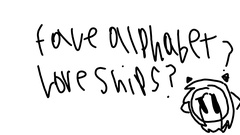 fave alphabet
Lore ships?
?